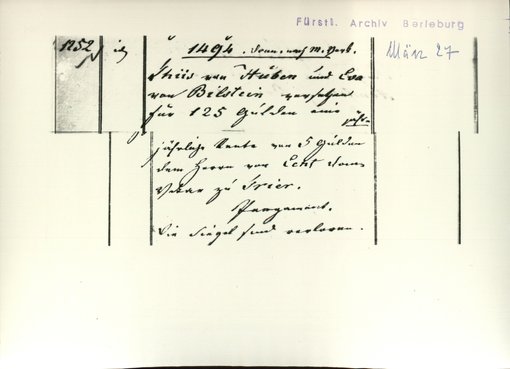 Fürstl. Archiv Berleburg
1252
1494. Donn. nach M. Verk.
März 27
von Hüben und Eva
von Bilstein versetzen
für 125 Gulden eine
jähr-
jährliche Rente von 5 Gulden
dem Herrn von Echt Dom-
Vikar zu Trier.
Pergament.
Die Siegel sind verloren.